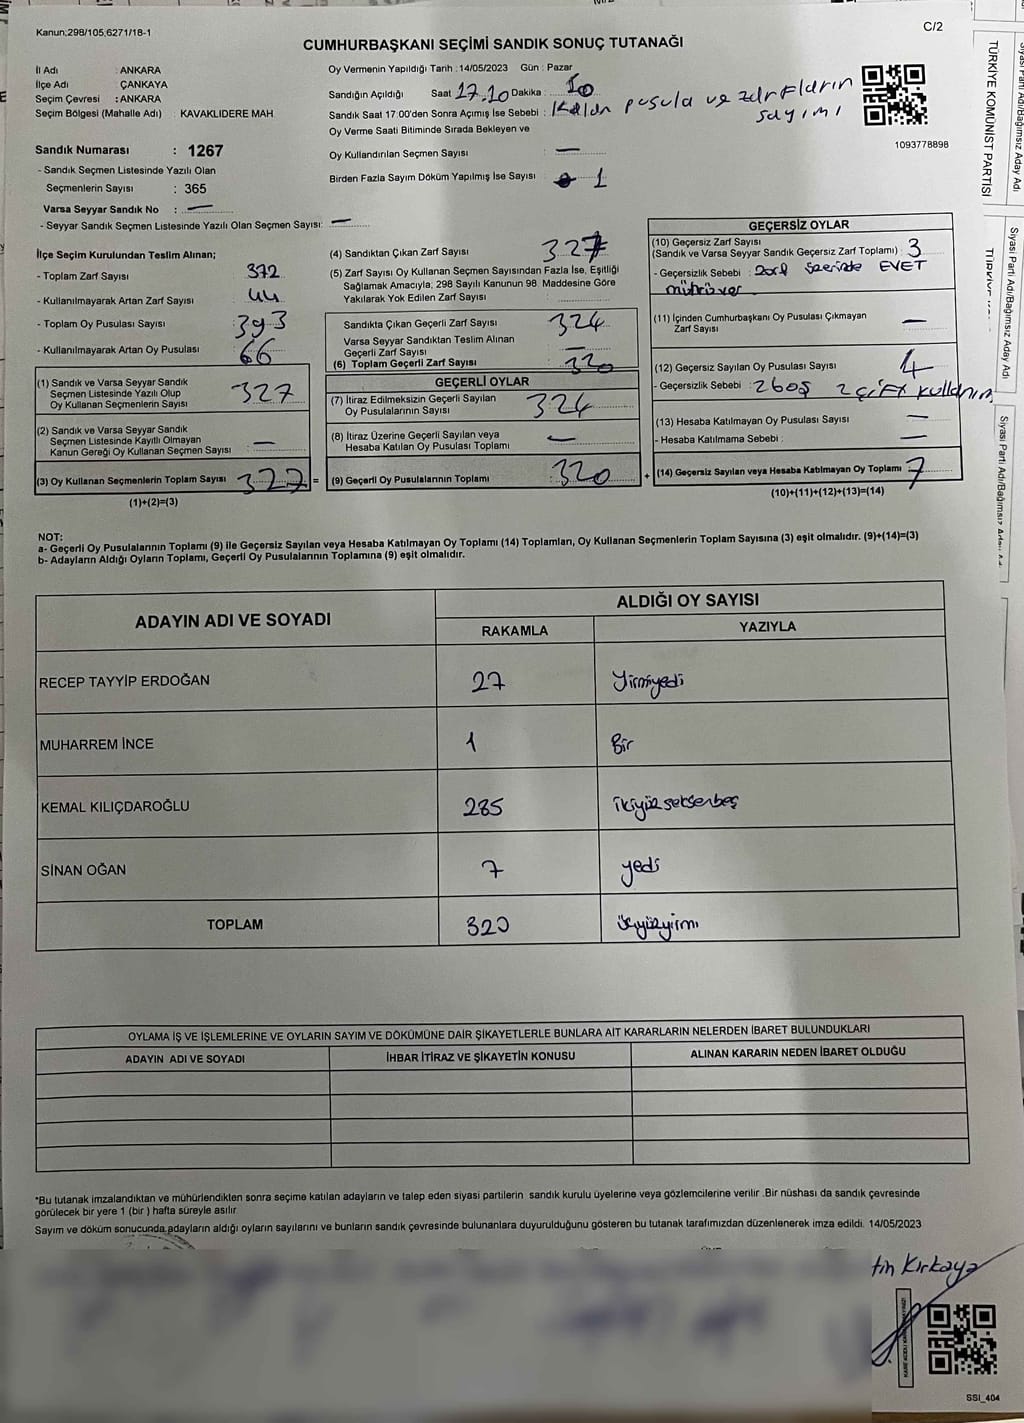 Kanun;298/105,6271/18-1
C/2
CUMHURBAŞKANI SEÇİMİ SANDIK SONUÇ TUTANAĞI
İl Adı : ANKARA
İlçe Adı : ÇANKAYA
Seçim Çevresi : ANKARA
Seçim Bölgesi (Mahalle Adı) : KAVAKLIDERE MAH
Sandık Numarası : 1267
- Sandık Seçmen Listesinde Yazılı Olan
Seçmenlerin Sayısı : 365
Varsa Seyyar Sandık No : —
- Seyyar Sandık Seçmen Listesinde Yazılı Olan Seçmen Sayısı: —
Oy Vermenin Yapıldığı Tarih : 14/05/2023 Gün : Pazar
Sandığın Açıldığı Saat 17.10 Dakika : 10
Sandık Saat 17:00'den Sonra Açımış İse Sebebi : Kalan pusula ve zarfların sayımı
Oy Verme Saati Bitiminde Sırada Bekleyen ve
Oy Kullandırılan Seçmen Sayısı : —
Birden Fazla Sayım Döküm Yapılmış İse Sayısı : 1
1093778898
İlçe Seçim Kurulundan Teslim Alınan;
- Toplam Zarf Sayısı 372
- Kullanılmayarak Artan Zarf Sayısı 44
- Toplam Oy Pusulası Sayısı 393
- Kullanılmayarak Artan Oy Pusulası 66
(1) Sandık ve Varsa Seyyar Sandık
Seçmen Listesinde Yazılı Olup
Oy Kullanan Seçmenlerin Sayısı 327
(2) Sandık ve Varsa Seyyar Sandık
Seçmen Listesinde Kayıtlı Olmayan
Kanun Gereği Oy Kullanan Seçmen Sayısı —
(3) Oy Kullanan Seçmenlerin Toplam Sayısı 327 =
(1)+(2)=(3)
(4) Sandıktan Çıkan Zarf Sayısı 327
(5) Zarf Sayısı Oy Kullanan Seçmen Sayısından Fazla İse, Eşitliği
Sağlamak Amacıyla; 298 Sayılı Kanunun 98. Maddesine Göre
Yakılarak Yok Edilen Zarf Sayısı
Sandıkta Çıkan Geçerli Zarf Sayısı 324
Varsa Seyyar Sandıktan Teslim Alınan
Geçerli Zarf Sayısı —
(6) Toplam Geçerli Zarf Sayısı 320
GEÇERLİ OYLAR
(7) İtiraz Edilmeksizin Geçerli Sayılan
Oy Pusulalarının Sayısı 324
(8) İtiraz Üzerine Geçerli Sayılan veya
Hesaba Katılan Oy Pusulası Toplamı —
(9) Geçerli Oy Pusulalarının Toplamı : 320 +
GEÇERSİZ OYLAR
(10) Geçersiz Zarf Sayısı
(Sandık ve Varsa Seyyar Sandık Geçersiz Zarf Toplamı) 3
- Geçersizlik Sebebi : Zarf üzerinde EVET
mührü var
(11) İçinden Cumhurbaşkanı Oy Pusulası Çıkmayan
Zarf Sayısı —
(12) Geçersiz Sayılan Oy Pusulası Sayısı 4
- Geçersizlik Sebebi : 2 boş 2 çift kullanım
(13) Hesaba Katılmayan Oy Pusulası Sayısı —
- Hesaba Katılmama Sebebi : —
(14) Geçersiz Sayılan veya Hesaba Katılmayan Oy Toplamı 7
(10)+(11)+(12)+(13)=(14)
NOT:
a- Geçerli Oy Pusulalarının Toplamı (9) ile Geçersiz Sayılan veya Hesaba Katılmayan Oy Toplamı (14) Toplamları, Oy Kullanan Seçmenlerin Toplam Sayısına (3) eşit olmalıdır. (9)+(14)=(3)
b- Adayların Aldığı Oyların Toplamı, Geçerli Oy Pusulalarının Toplamına (9) eşit olmalıdır.
ADAYIN ADI VE SOYADI
ALDIĞI OY SAYISI
RAKAMLA YAZIYLA
RECEP TAYYİP ERDOĞAN 27 Yirmiyedi
MUHARREM İNCE 1 Bir
KEMAL KILIÇDAROĞLU 285 ikiyüzseksenbeş
SİNAN OĞAN 7 yedi
TOPLAM 320 üçyüzyirmi
OYLAMA İŞ VE İŞLEMLERİNE VE OYLARIN SAYIM VE DÖKÜMÜNE DAİR ŞİKAYETLERLE BUNLARA AİT KARARLARIN NELERDEN İBARET BULUNDUKLARI
ADAYIN ADI VE SOYADI İHBAR İTİRAZ VE ŞİKAYETİN KONUSU ALINAN KARARIN NEDEN İBARET OLDUĞU
*Bu tutanak imzalandıktan ve mühürlendikten sonra seçime katılan adayların ve talep eden siyasi partilerin sandık kurulu üyelerine veya gözlemcilerine verilir .Bir nüshası da sandık çevresinde
görülecek bir yere 1 (bir ) hafta süreyle asılır.
Sayım ve döküm sonucunda,adayların aldığı oyların sayılarını ve bunların sandık çevresinde bulunanlara duyurulduğunu gösteren bu tutanak tarafımızdan düzenlenerek imza edildi. 14/05/2023
tin Kırkaya
SSI_404
TÜRKİYE KOMÜNİST PARTİSİ
Siyasi Parti Adı/Bağımsız Aday Adı
Siyasi Parti Adı/Bağımsız Aday Adı